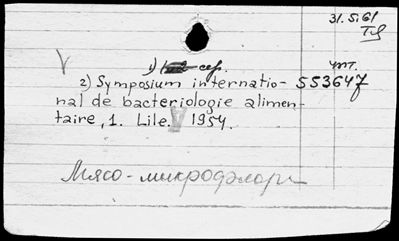 31.5.61
V
1) сер.
чит.
2) Symposium internatio- 553647
nal de bacteriologie alimen-
taire, 1. Lile. 1954.
Мясо-микрофлора